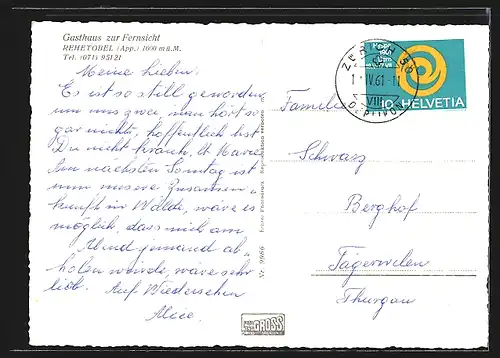 Gasthaus zur Fernsicht
REHETOBEL (App.) 1000 m ü. M.
Tel. (071) 95121
Meine lieben!
Es ist so still geworden,
um uns zwei, man hört so
gar nichts, hoffentlich bist
Du nicht krank, lb. Marie
Am nächsten Sonntag ist
nun unsere Zusammen-
kunft in Wälde, wäre es
möglich, dass mich am
Abend jemand ab-
holen würde, wäre sehr
lieb. Auf Wiedersehen
Alice.
Nr. 9966
Reproduktion verboten
ZÜRICH
IV.61-11
VIII
10 HELVETIA
Familie
Schwarz
Berghof
Tägerwilen
Thurgau
GROSS